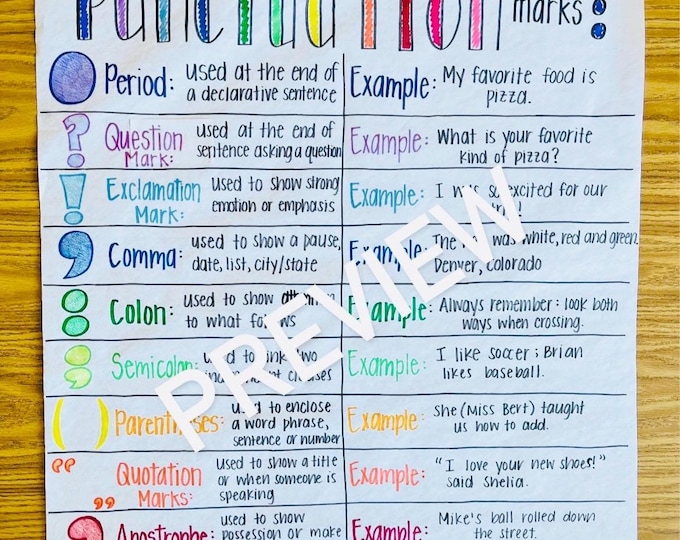 Punctuation marks:
Period: used at the end of a declarative sentence
Example: My favorite food is pizza.
Question Mark: used at the end of sentence asking a question
Example: What is your favorite kind of pizza?
Exclamation Mark: used to show strong emotion or emphasis
Example: I was so excited for our
Comma: used to show a pause, date, list, city/state
Example: The was white, red and green. Denver, colorado
Colon: used to show to what
Example: Always remember: look both ways when crossing.
Semicolon: used to link two clauses
Example: I like soccer; Brian likes baseball.
Parentheses: used to enclose a word phrase, sentence or number
Example: She (Miss Bert) taught us how to add.
Quotation Marks: used to show a title or when someone is speaking
Example: "I love your new shoes!" said Shelia.
Apostrophe: used to show possession or make
Example: Mike's ball rolled down the street.
PREVIEW